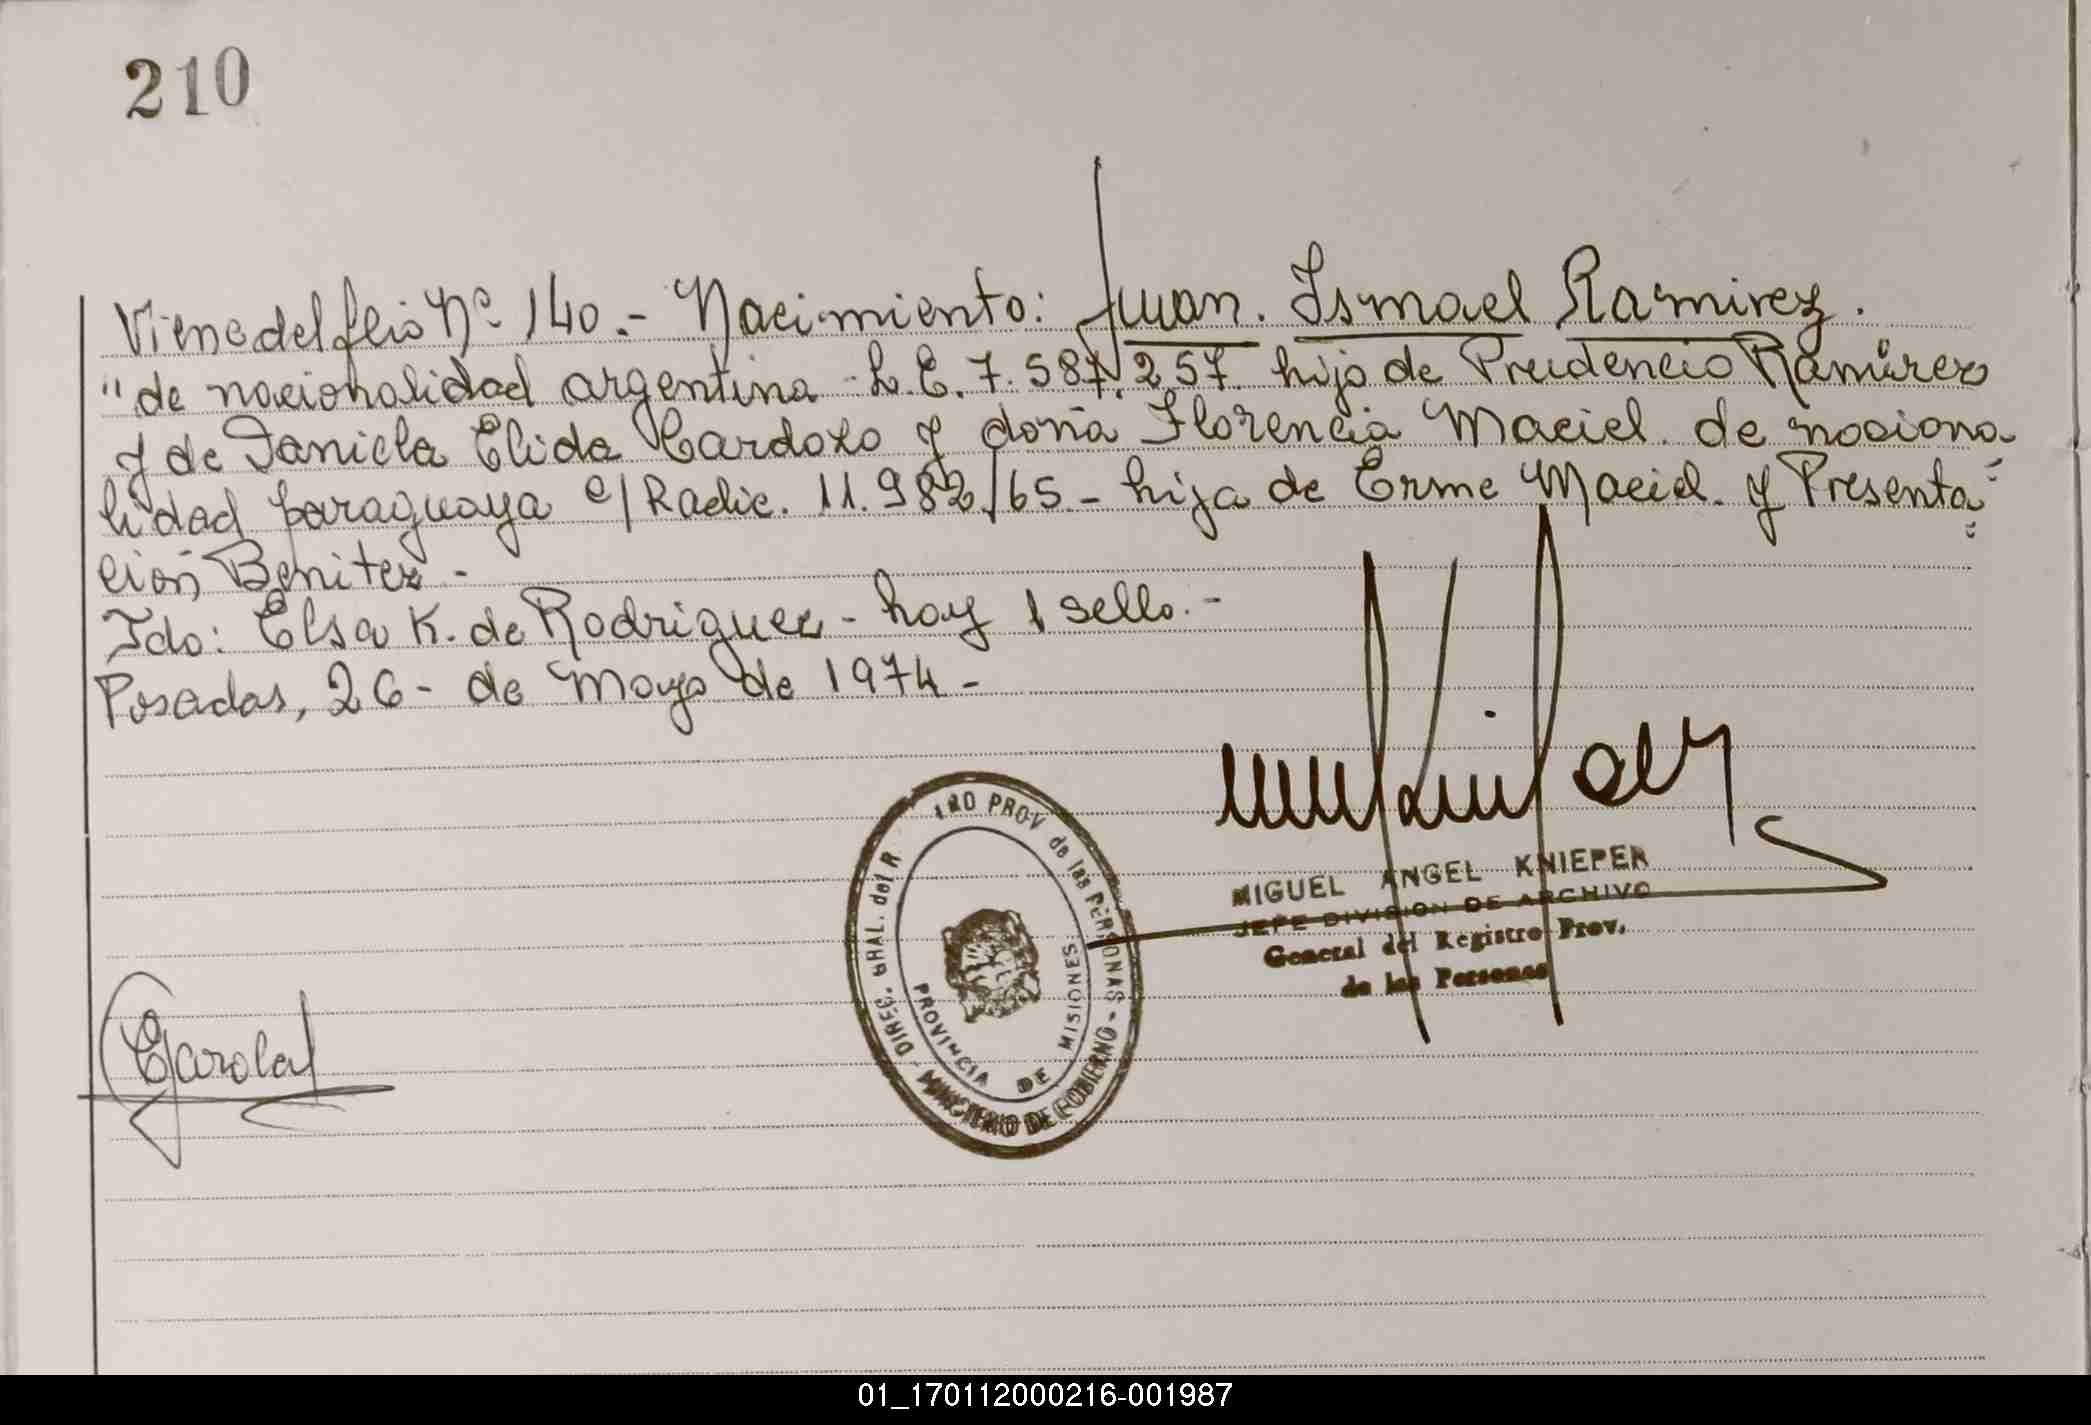 210
Viene del flio Nº 140.- Nacimiento: Juan. Ismael Ramirez.
"de nacionalidad argentina - L.E. 7.587.257. hijo de Prudencio Ramirez
y de Daniela Elida Cardozo y doña Florencia Maciel. de naciona
lidad paraguaya c/Radic. 11.982/65 - hija de Erme Maciel. y Presenta=
ción Benitez -
Fdo: Elsa K. de Rodriguez - hay 1 sello.-
Posadas, 26 - de Mayo de 1974 -
MIGUEL ANGEL KNIEPER
JEFE DIVISION DE ARCHIVO
General del Registro Prov.
de las Personas
DIREC. GRAL. del R PROV de las PERSONAS - MINISTERIO DE GOBIERNO -
PROVINCIA DE MISIONES
01_170112000216-001987